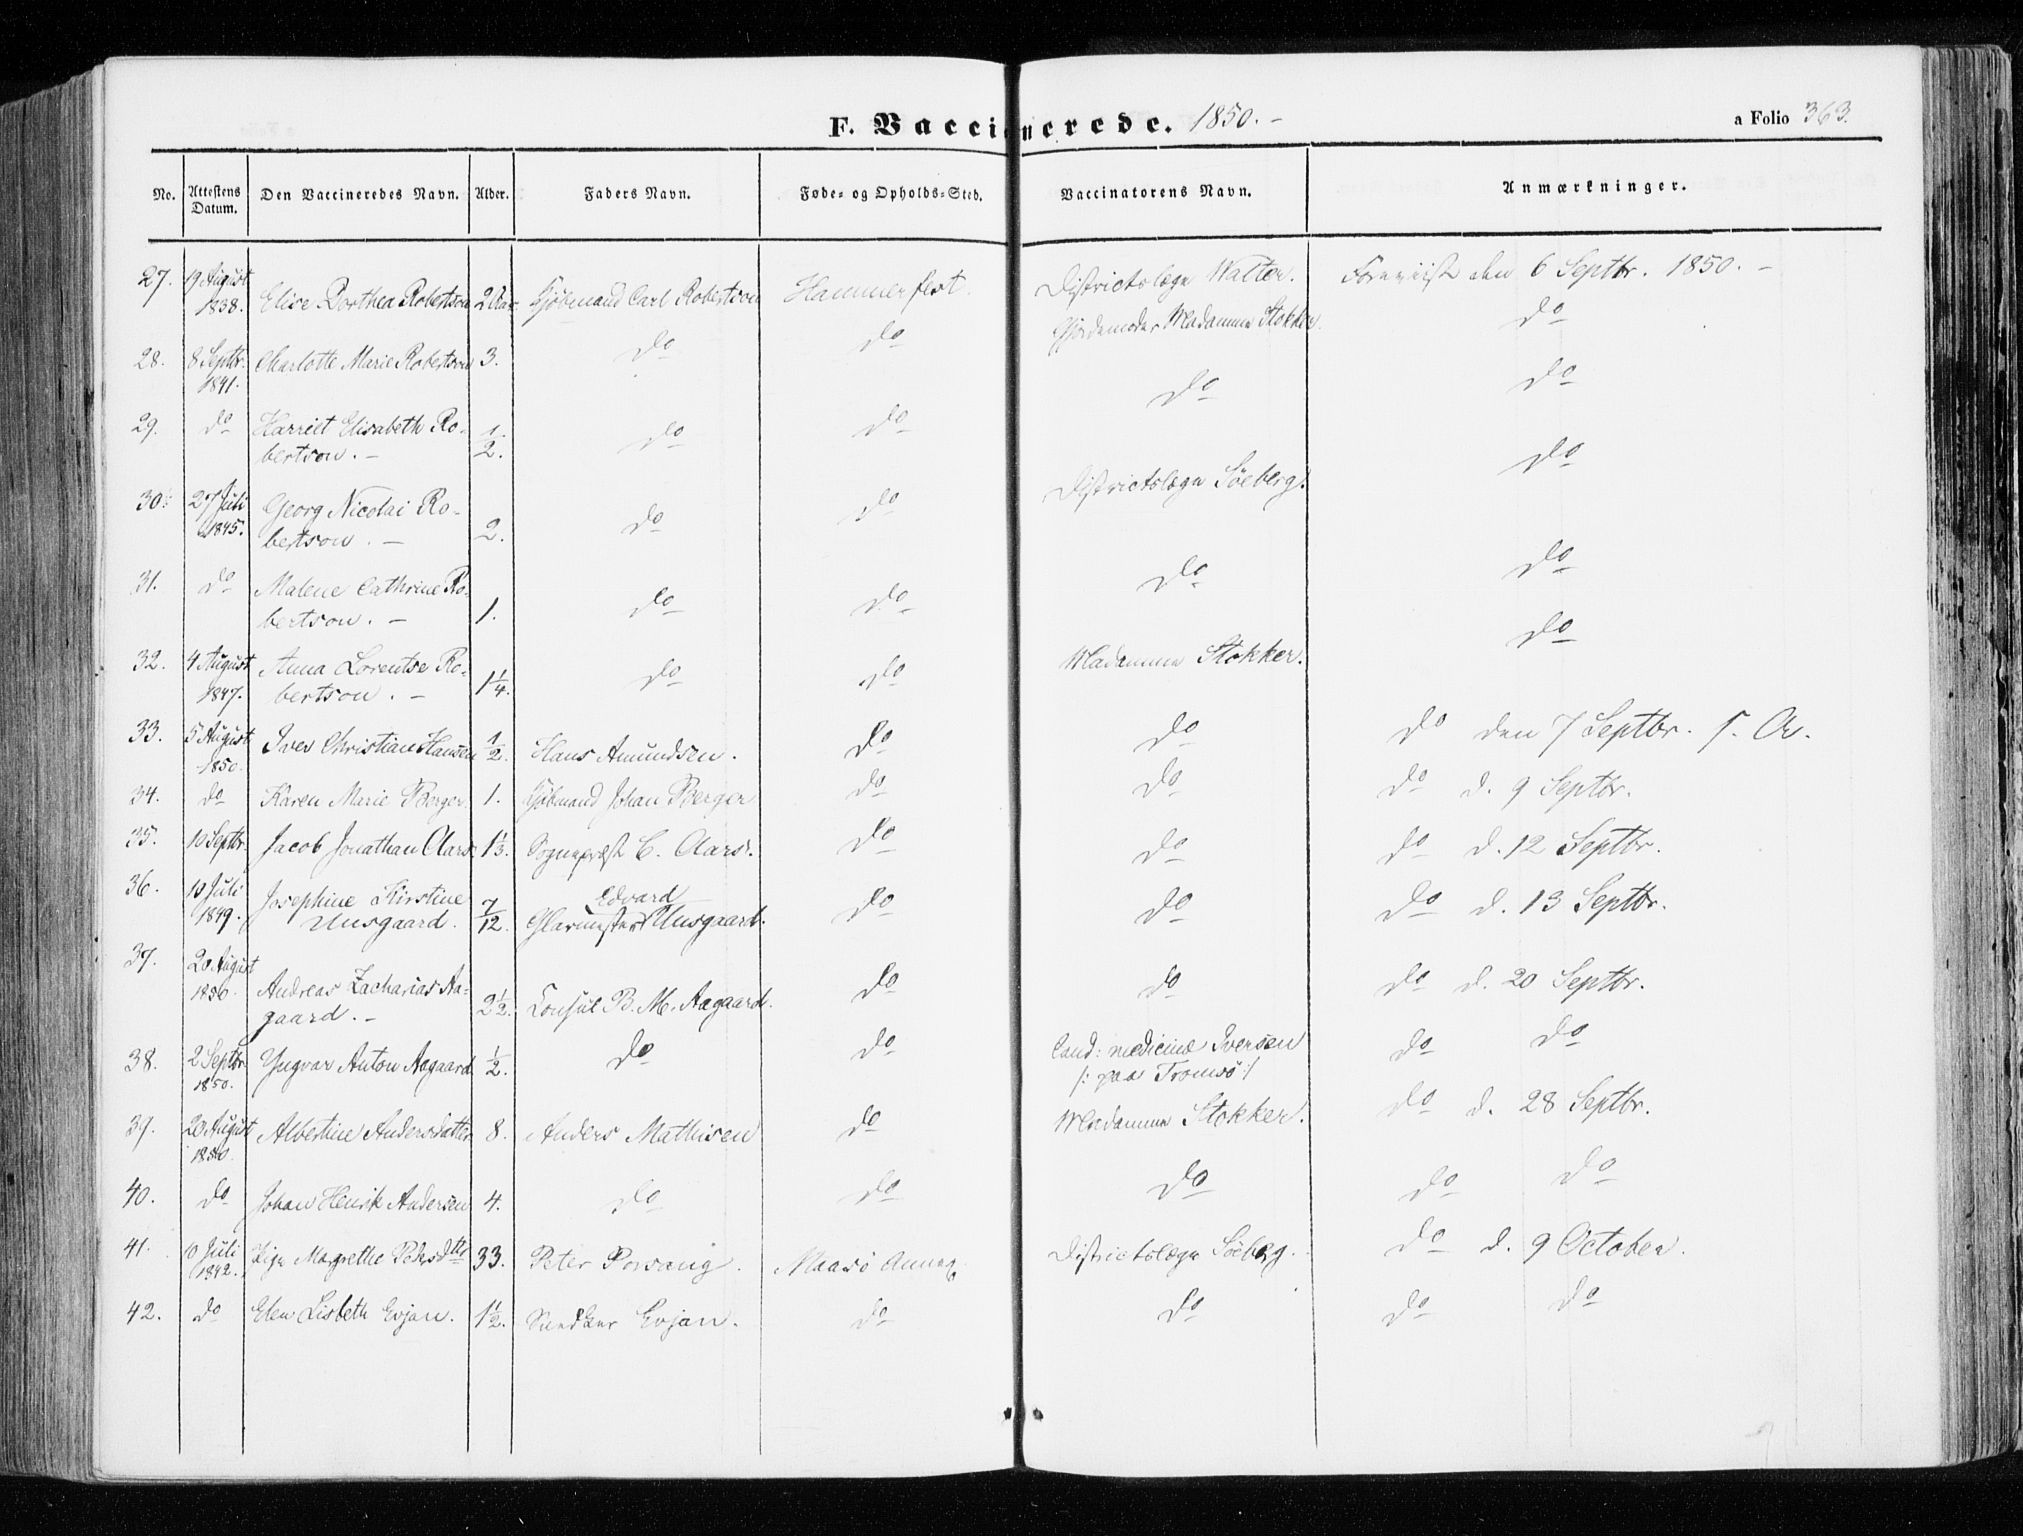 F. Vaccinerede. 1850. -
a Folio 363.
No. Attestens Datum. Den Vaccineredes Navn. Alder. Faders Navn. Føde- og Opholds-Sted. Vaccinatorens Navn. Anmærkninger.
27. 19 August 1838. Elise Dorthea Robertson 2 Aar Kjöbmand Carl Robertson Hammerfest. Districtslæge Walter. Foreviist den 6 Septbr. 1850. -
28. 8 Septbr. 1841. Charlotte Marie Robertson 3. do do Gjordemoder Madamme Stokker. do
29. do Harriet Elisabeth Ro-
bertson. - 1/2. do do do do
30. 27 Juli 1845. Georg Nicolai Ro-
bertson. - 2. do do Districtslæge Söeberg. do
31. do Malene Cathrine Ro-
bertson. - 1. do do do do
32. 4 August 1847. Anna Lorentse Ro-
bertson. - 1 1/4. do do Madamme Stokker. do
33. 5 August 1850. Iver Christian Hansen 1/2. Hans Amundsen. do do do den 7 Septbr. s. A.
34. do Karen Marie Berger 1. Kjöbmand Johan Berger do do do d. 9 Septbr.
35. 10 Septbr. Jacob Jonathan Aars 1 1/3. Sognepræst C. Aars. do do do d. 12 Septbr.
36. 10 Juli 1849. Josephine Kirstine
Unsgaard. 7/12. Glarmester Edvard Unsgaard. do do do d. 13 Septbr.
37. 20 August 1836. Andreas Zacharias Aa-
gaard. - 2 1/2. Consul B. M. Aagaard. do do do d. 20 Septbr.
38. 2 Septbr 1850. Yngvar Anton Aagaard 1/2. do do Cand: medicinæ Iversen
/: paa Tromsø :/ do do
39. 20 August 1850. Albertine Andersdatter 8. Anders Mathisen do Madamme Stokker. do d. 28 Septbr.
40. do Johan Henrik Andersen 4. do do do do do
41. 10 Juli 1842. Margrethe Pedersdttr 33. Peter Porsang. Maasö Annex. Districtslæge Söeberg. do d. 9 October.
42. do Elen Lisbeth Evjan. 1 1/2. Evjan. do do do do